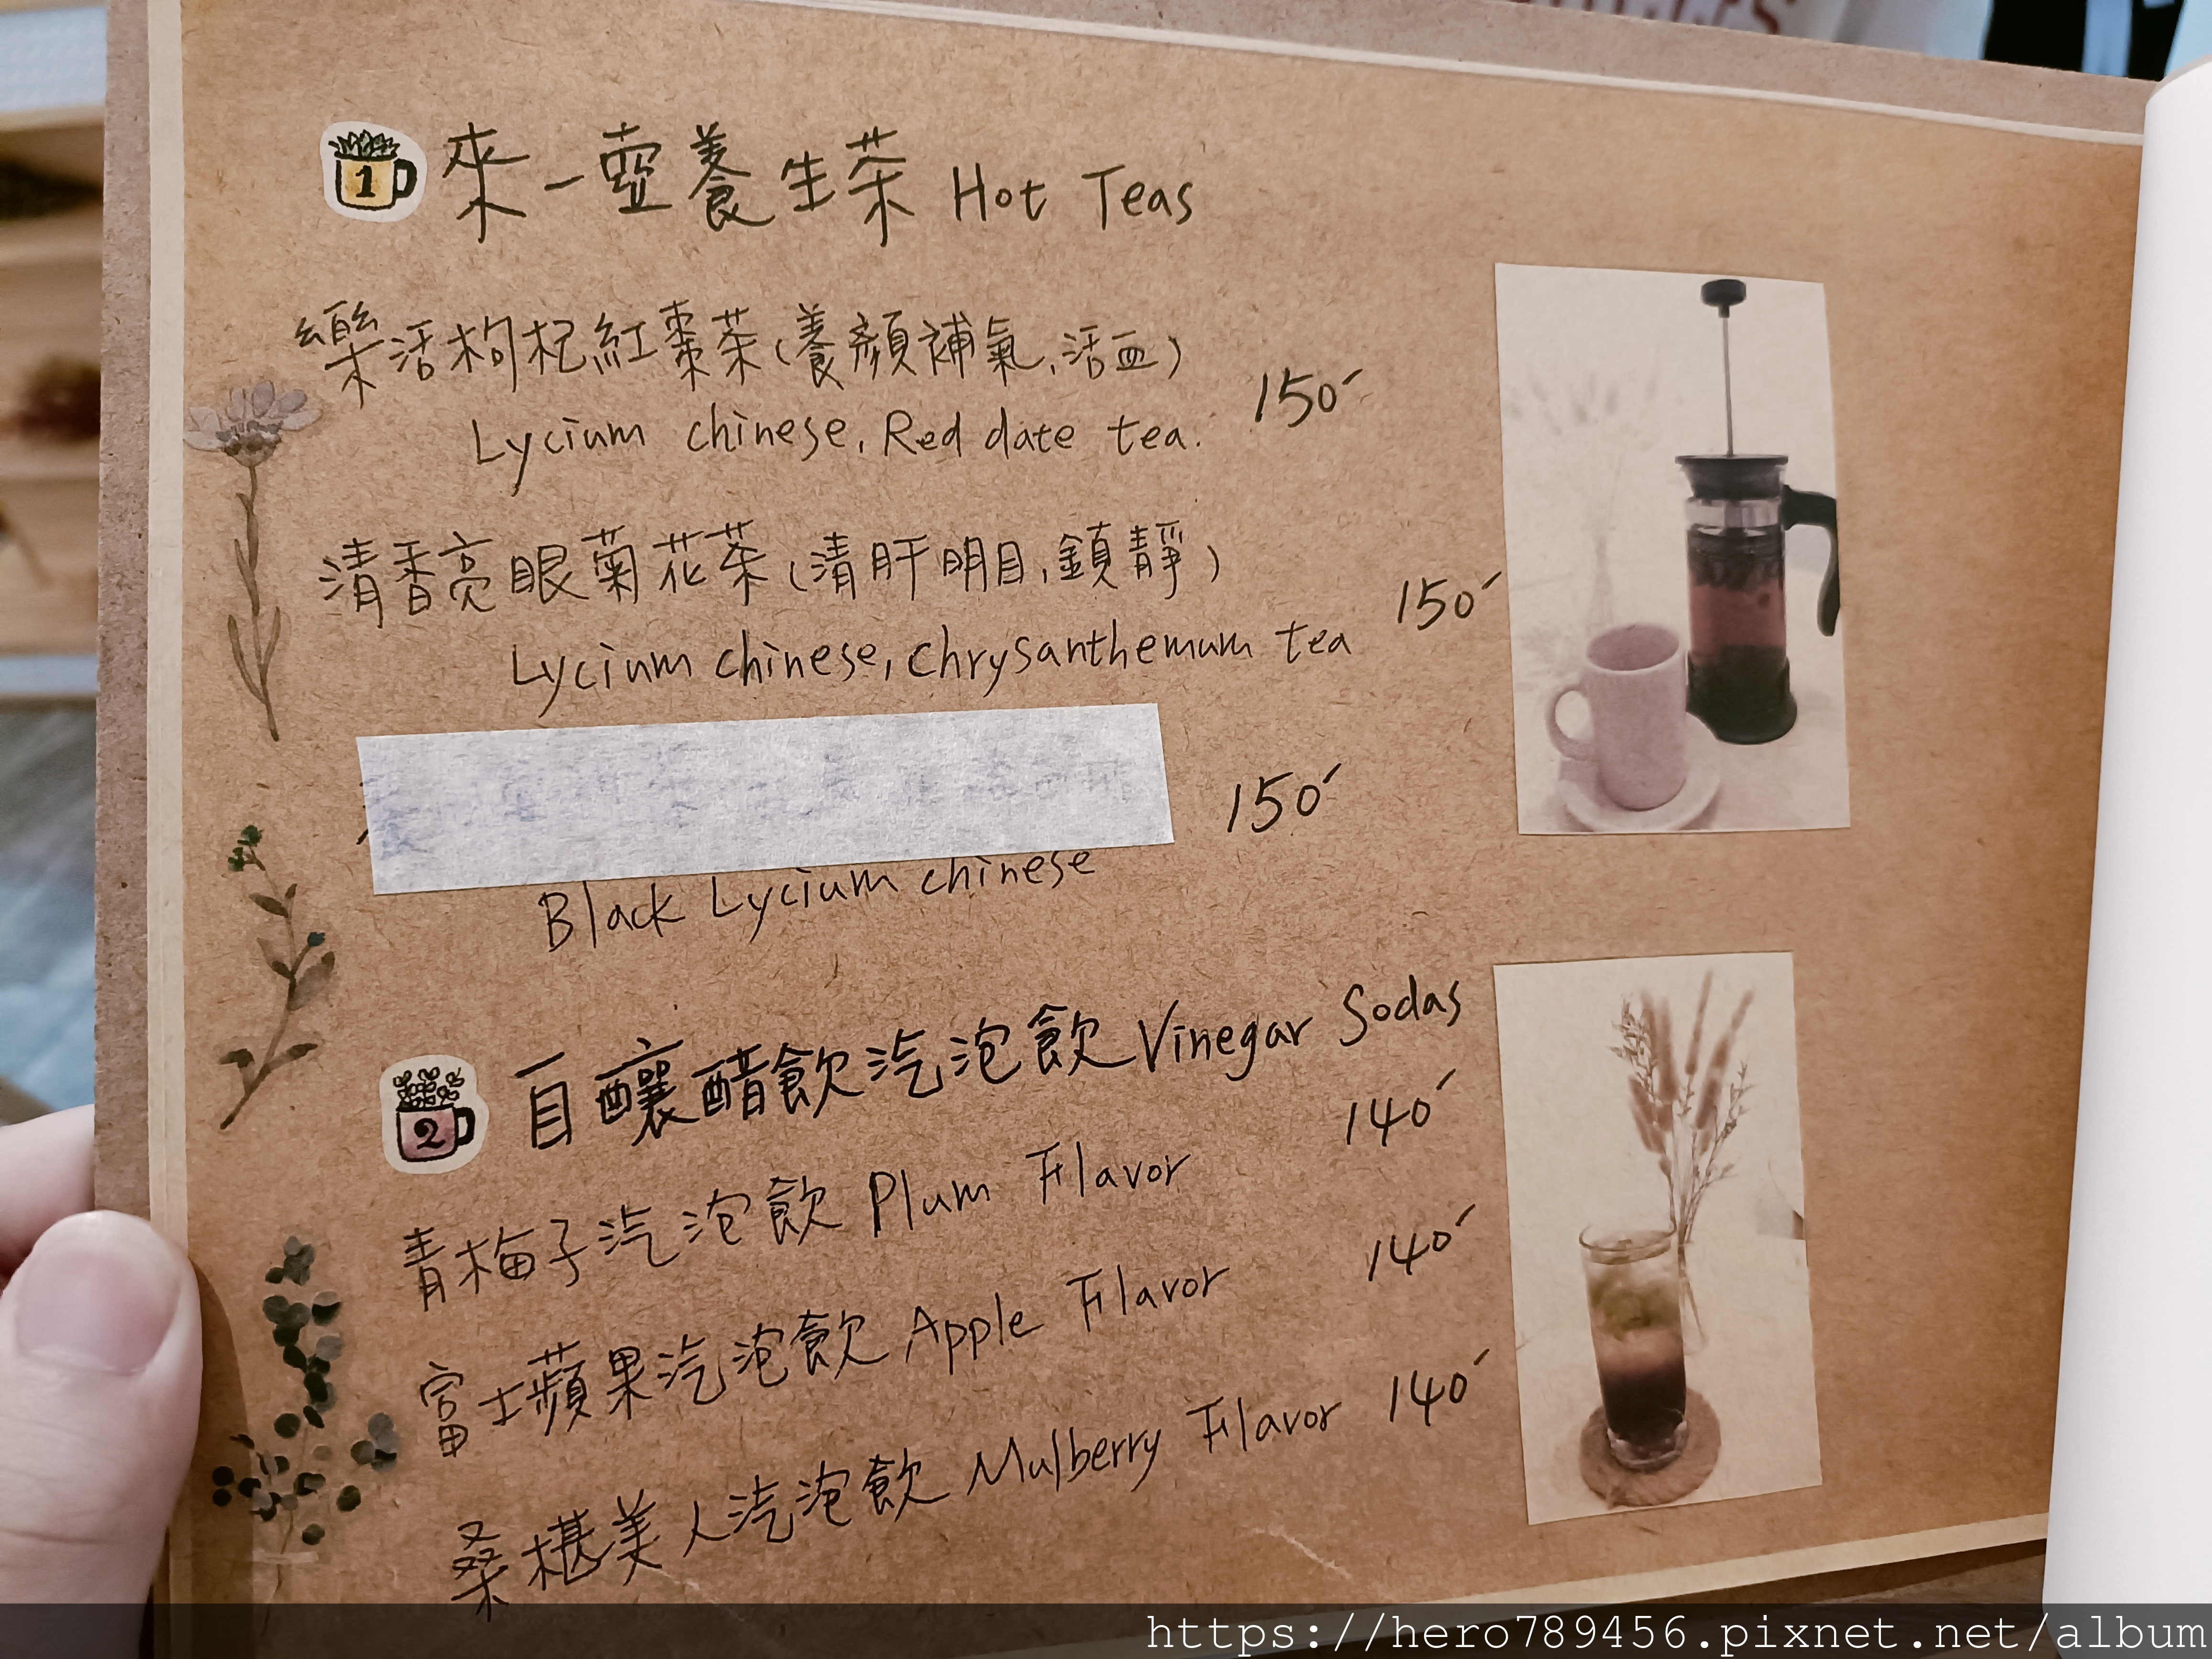 1 來一壺養生茶 Hot Teas
樂活枸杞紅棗茶(養顏補氣,活血)
Lycium chinese, Red date tea. 150
清香亮眼菊花茶(清肝明目,鎮靜)
Lycium chinese, chrysanthemum tea 150
150
Black Lycium chinese
2 自釀醋飲汽泡飲 Vinegar Sodas
青梅子汽泡飲 Plum Flavor 140
富士蘋果汽泡飲 Apple Flavor 140
桑椹美人汽泡飲 Mulberry Flavor 140
https://hero789456.pixnet.net/album